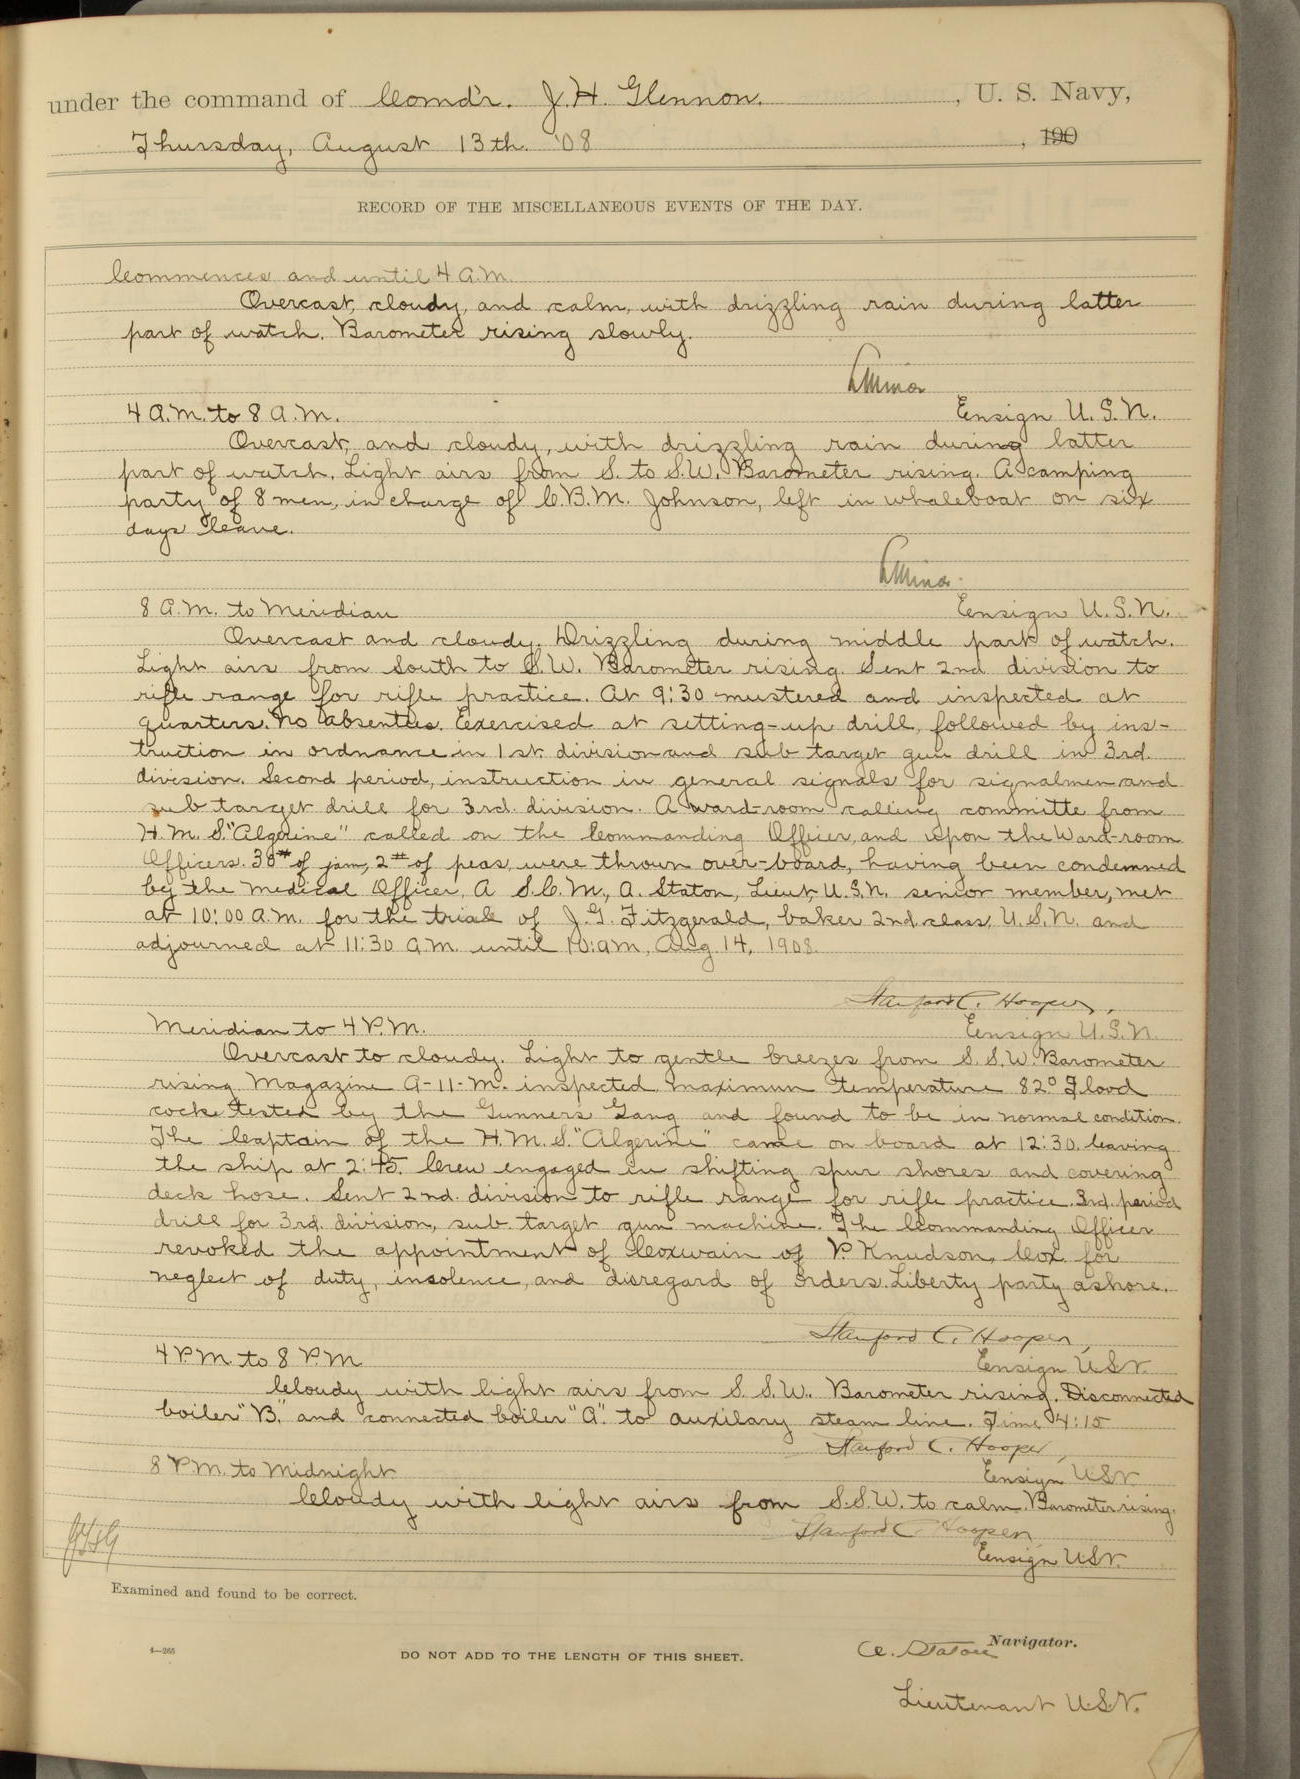 under the command of Comd'r. J.H. Glennon, U. S. Navy,
Thursday, August 13th. '08, 190
RECORD OF THE MISCELLANEOUS EVENTS OF THE DAY.
Commences and until 4 A.M.
Overcast, cloudy, and calm, with drizzling rain during latter
part of watch. Barometer rising slowly.
4 A.M. to 8 A.M.
Ensign U.S.N.
Overcast, and cloudy, with drizzling rain during latter
part of watch. Light airs from S. to S.W. Barometer rising. A camping
party of 8 men, in charge of C.B.M. Johnson, left in whaleboat on six
days leave.
8 A.M. to Meridian
Ensign U.S.N.
Overcast and cloudy. Drizzling during middle part of watch.
Light airs from South to S.W. Barometer rising. Sent 2nd division to
rifle range for rifle practice. At 9:30 mustered and inspected at
quarters. No absentees. Exercised at setting-up drill, followed by ins-
truction in ordnance in 1st. division and sub target gun drill in 3rd.
division. Second period, instruction in general signals for signalmen and
sub target drill for 3rd. division. A ward-room calling committe from
H.M.S. "Algerine" called on the Commanding Officer, and upon the Ward-room
Officers. 30# of jam, 2# of peas, were thrown over-board, having been condemned
by the Medical Officer. A S.C.M., A. Staton, Lieut, U.S.N. senior member, met
at 10:00 A.M. for the trial of J.G. Fitzgerald, baker 2nd class, U.S.N. and
adjourned at 11:30 A.M. until 10: a.m., Aug. 14, 1908.
Stanford C. Hooper,
Meridian to 4 P.M.
Ensign U.S.N.
Overcast to cloudy. Light to gentle breezes from S.S.W. Barometer
rising. Magazine A-11-M. inspected. Maximum temperature 82° Flood
cock tested by the Gunners Gang and found to be in normal condition.
The Captain of the H.M.S. "Algerine" came on board at 12:30, leaving
the ship at 2:45. Crew engaged in shifting spur shores and covering
deck hose. Sent 2nd. division to rifle range for rifle practice. 3rd. period
drill for 3rd. division, sub. target gun machine. The Commanding Officer
revoked the appointment of Coxwain of P. Knudson, Cox. for
neglect of duty, insolence, and disregard of orders. Liberty party ashore.
Stanford C. Hooper,
4 P.M. to 8 P.M.
Ensign USN.
Cloudy with light airs from S.S.W. Barometer rising. Disconnected
boiler "B." and connected boiler "A." to auxilary steam line. Time 4:15
Stanford C. Hooper,
8 P.M. to Midnight
Ensign USN
Cloudy with light airs from S.S.W. to calm. Barometer rising.
Stanford C. Hooper,
Ensign USN.
Examined and found to be correct.
A. Staton Navigator.
4—265
DO NOT ADD TO THE LENGTH OF THIS SHEET.
Lieutenant U.S.N.